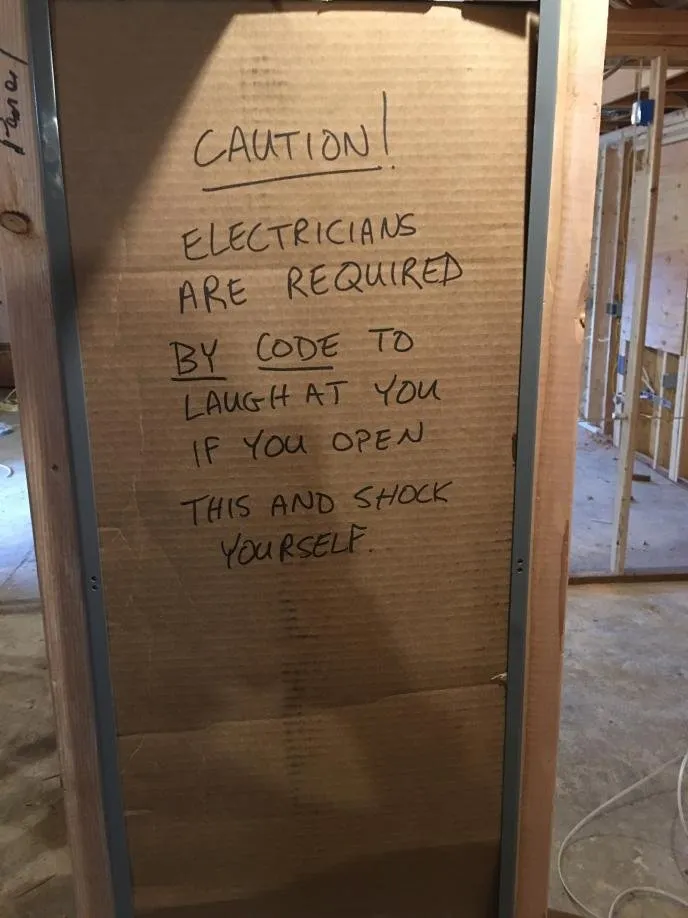 Panel
CAUTION!
ELECTRICIANS
ARE REQUIRED
BY CODE TO
LAUGH AT YOU
IF YOU OPEN
THIS AND SHOCK
YOURSELF.